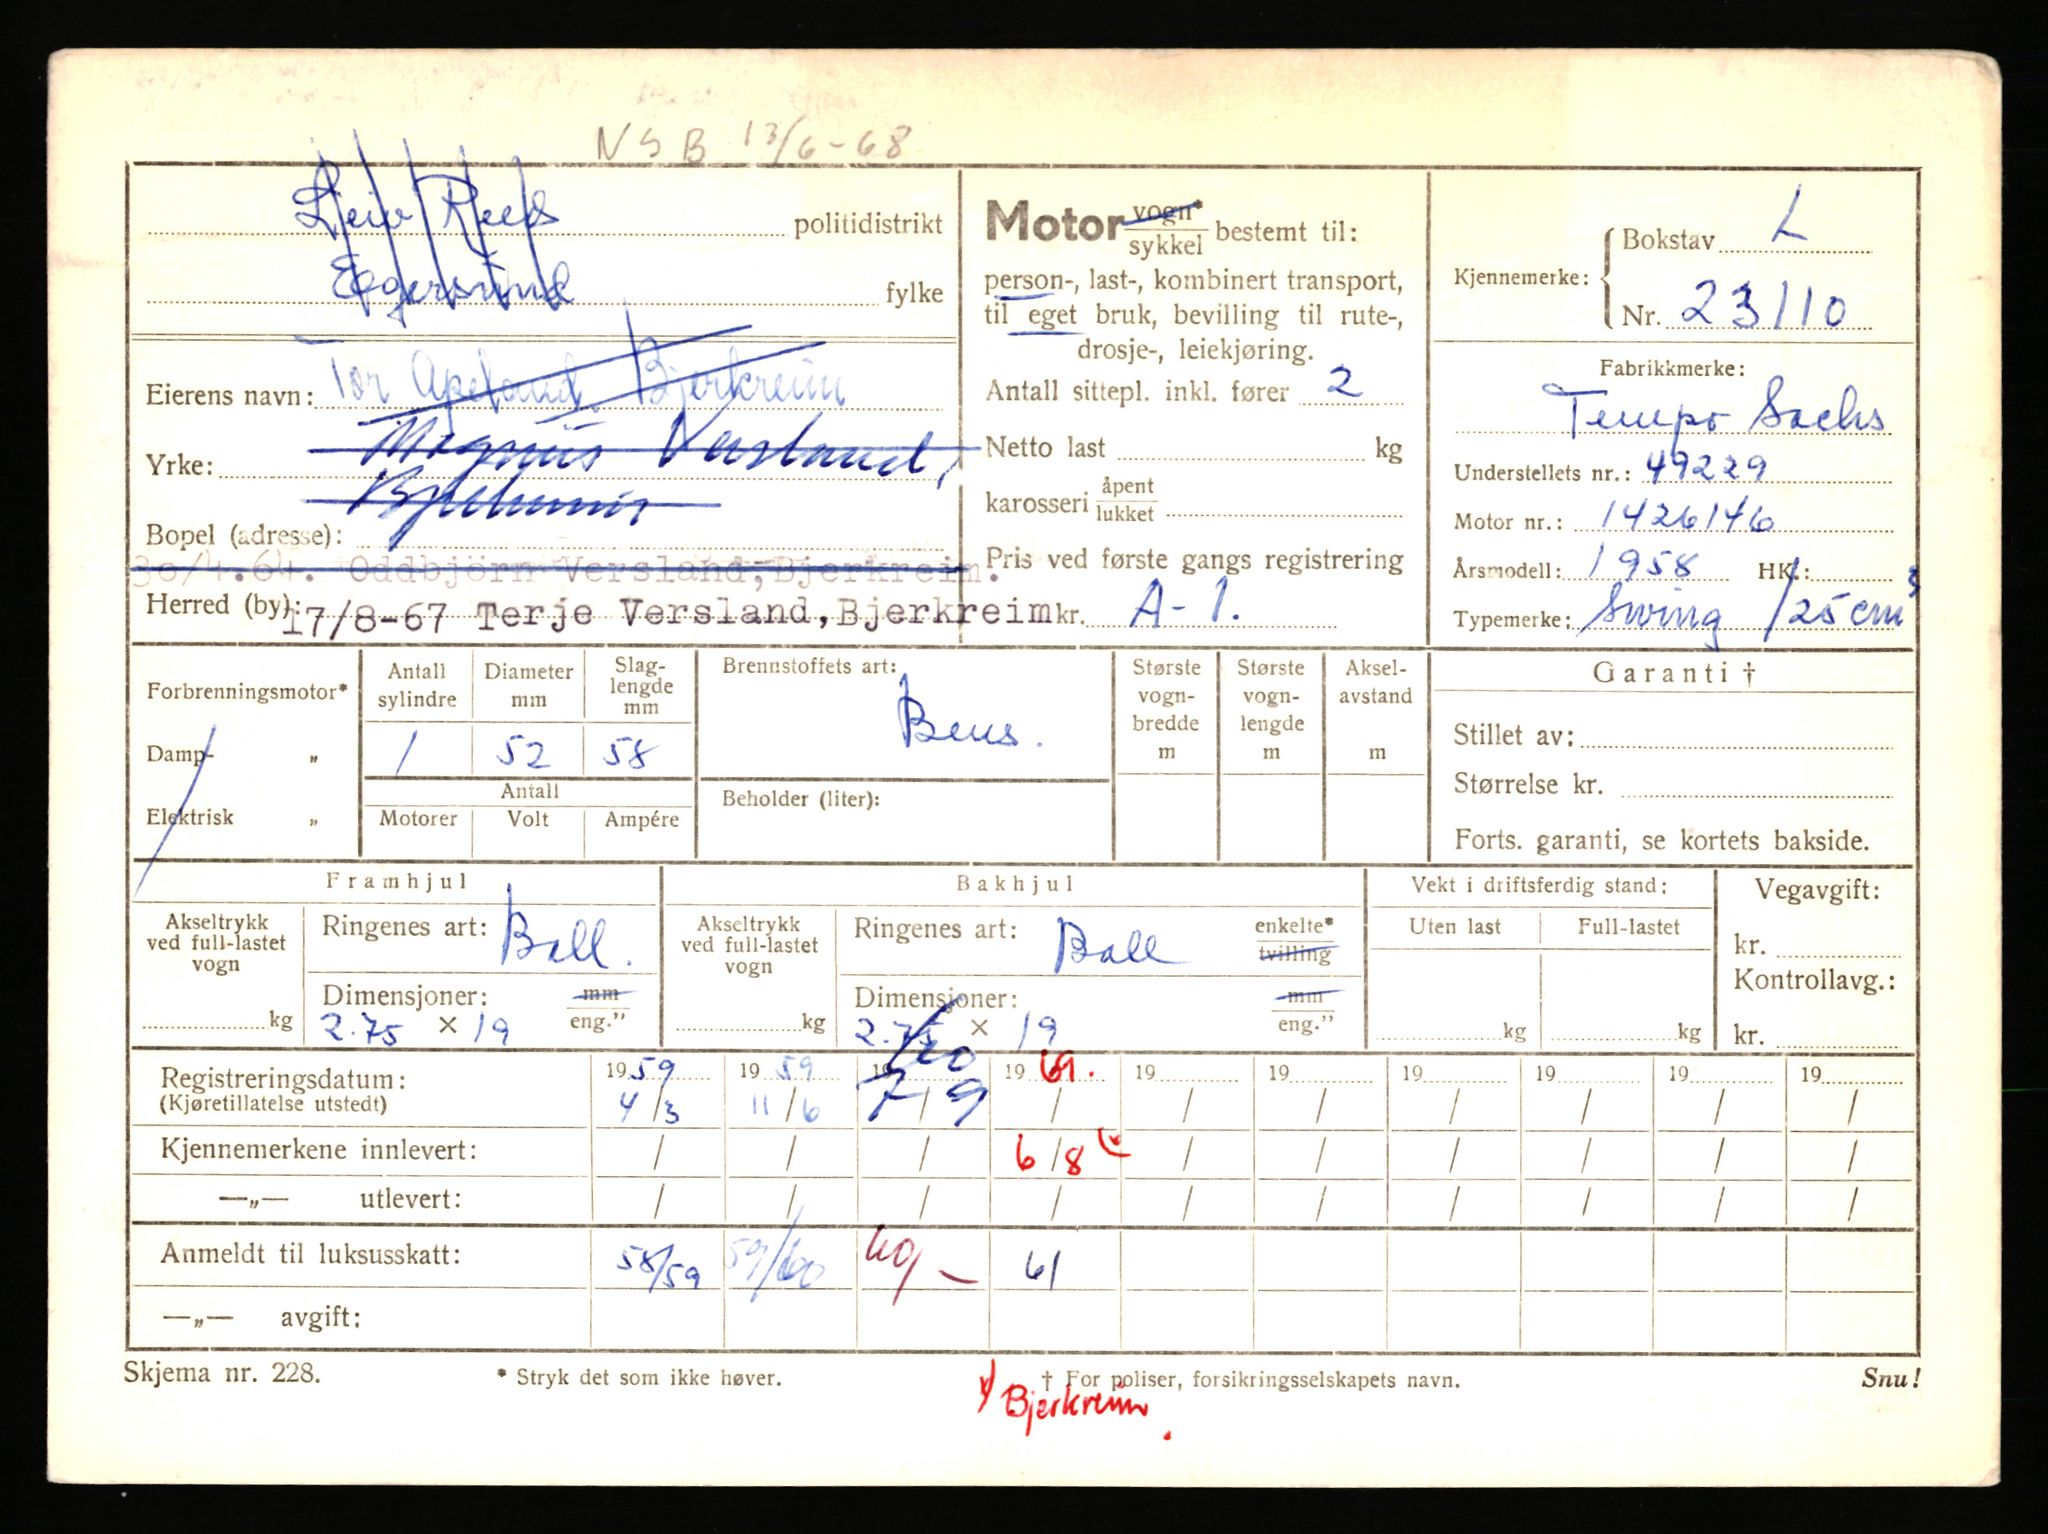 NSB 13/6-68
Leiv Rees politidistrikt
Egersund fylke
Eierens navn: Tor Apeland. Bjerkreim
Yrke: Magnus Versland,
Bjerkreim
Bopel (adresse):
30/4.64. Oddbjörn Versland, Bjerkreim.
Herred (by): 17/8-67 Terje Versland, Bjerkreim
Motor vogn* / sykkel bestemt til:
person-, last-, kombinert transport,
til eget bruk, bevilling til rute-,
drosje-, leiekjøring.
Antall sittepl. inkl. fører 2
Netto last kg
karosseri åpent / lukket
Pris ved første gangs registrering
kr. A-1.
Kjennemerke: Bokstav L
Nr. 23110
Fabrikkmerke:
Tempo Sachs
Understellets nr.: 49229
Motor nr.: 1426146
Årsmodell: 1958 HK.:
Typemerke: Swing 125 cm³
Forbrenningsmotor*
Damp- „
Elektrisk „
Antall sylindre 1
Diameter mm 52
Slaglengde mm 58
Antall
Motorer Volt Ampére
Brennstoffets art:
Bens.
Beholder (liter):
Største vogn-bredde m
Største vogn-lengde m
Aksel-avstand m
Garanti †
Stillet av:
Størrelse kr.
Forts. garanti, se kortets bakside.
Framhjul
Akseltrykk ved full-lastet vogn kg
Ringenes art: Ball.
Dimensjoner: mm / eng."
2.75 × 19
Bakhjul
Akseltrykk ved full-lastet vogn kg
Ringenes art: Ball enkelte* / tvilling
Dimensjoner: mm / eng."
2.75 × 19
Vekt i driftsferdig stand:
Uten last Full-lastet
kg kg
Vegavgift:
kr.
Kontrollavg.:
kr.
Registreringsdatum: 1959 1959 1960 1969. 19 19 19 19 19 19
(Kjøretillatelse utstedt) 4/3 11/6 7/9 / / / / / / /
Kjennemerkene innlevert: / / / 6/8 / / / / / /
—„— utlevert: / / / / / / / / / /
Anmeldt til luksusskatt: 58/59 59/60 60- 61
—„— avgift:
Skjema nr. 228. * Stryk det som ikke høver. † For poliser, forsikringsselskapets navn. Snu!
Bjerkreim.